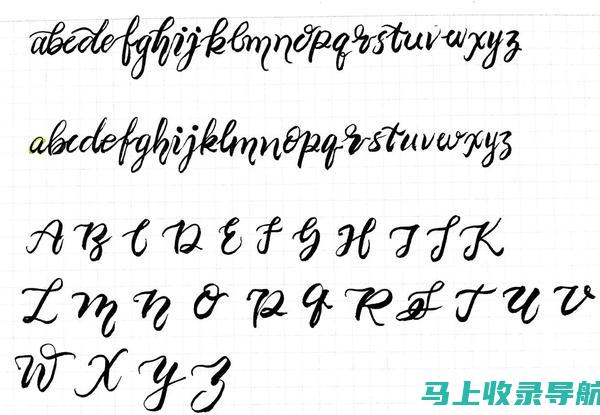 abcdefghijklmnopqrstuvwxyz
abcdefghijklmnopqrstuvwxyz
A B C D E F G H I J K
L M N O P Q R S T U V
W X Y Z
马上收录导航